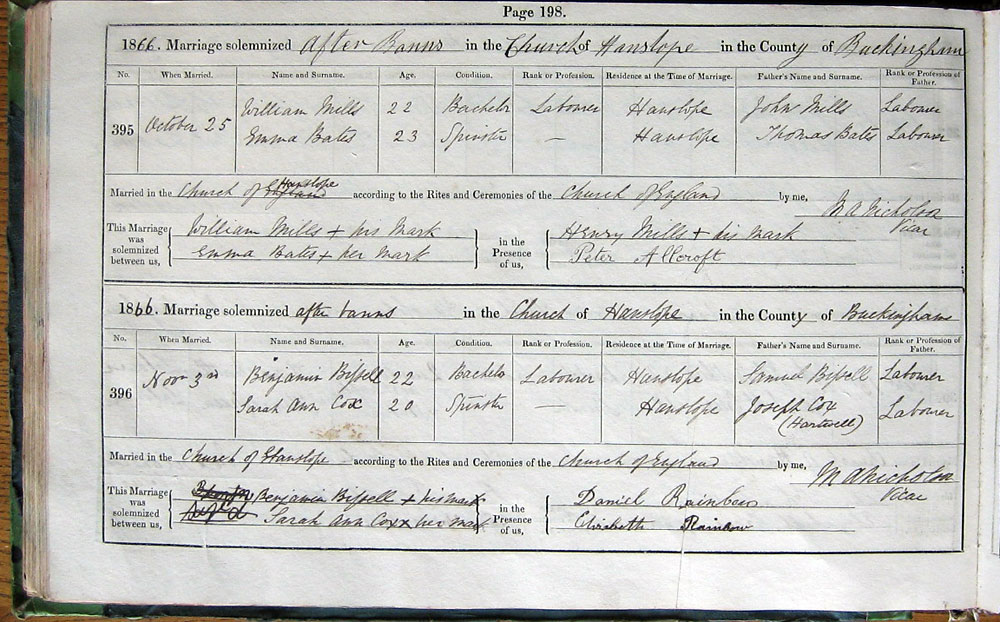 Page 198.
1866. Marriage solemnized After Banns in the Church of Hanslope in the County of Buckingham
No. When Married. Name and Surname. Age. Condition. Rank or Profession. Residence at the Time of Marriage. Father's Name and Surname. Rank or Profession of Father.
395 October 25 William Mills 22 Bachelor Labourer Hanslope John Mills Labourer
Emma Bates 23 Spinster — Hanslope Thomas Bates Labourer
Married in the Church of England Hanslope according to the Rites and Ceremonies of the Church of England by me, M A Nicholson
Vicar
This Marriage was solemnized between us, William Mills + his Mark in the Presence of us, Henry Mills + his mark
Emma Bates + her Mark Peter Allcroft
1866. Marriage solemnized after banns in the Church of Hanslope in the County of Buckingham
No. When Married. Name and Surname. Age. Condition. Rank or Profession. Residence at the Time of Marriage. Father's Name and Surname. Rank or Profession of Father.
396 Novr 3rd Benjamin Bissell 22 Bachelor Labourer Hanslope Samuel Bissell Labourer
Sarah Ann Cox 20 Spinster — Hanslope Joseph Cox Labourer
(Hartwell)
Married in the Church of Hanslope according to the Rites and Ceremonies of the Church of England by me, M A Nicholson
Vicar
This Marriage was solemnized between us, Benjamin Bissell + his mark in the Presence of us, Daniel Rainbow
Sarah Ann Cox x her mark Elizabeth Rainbow